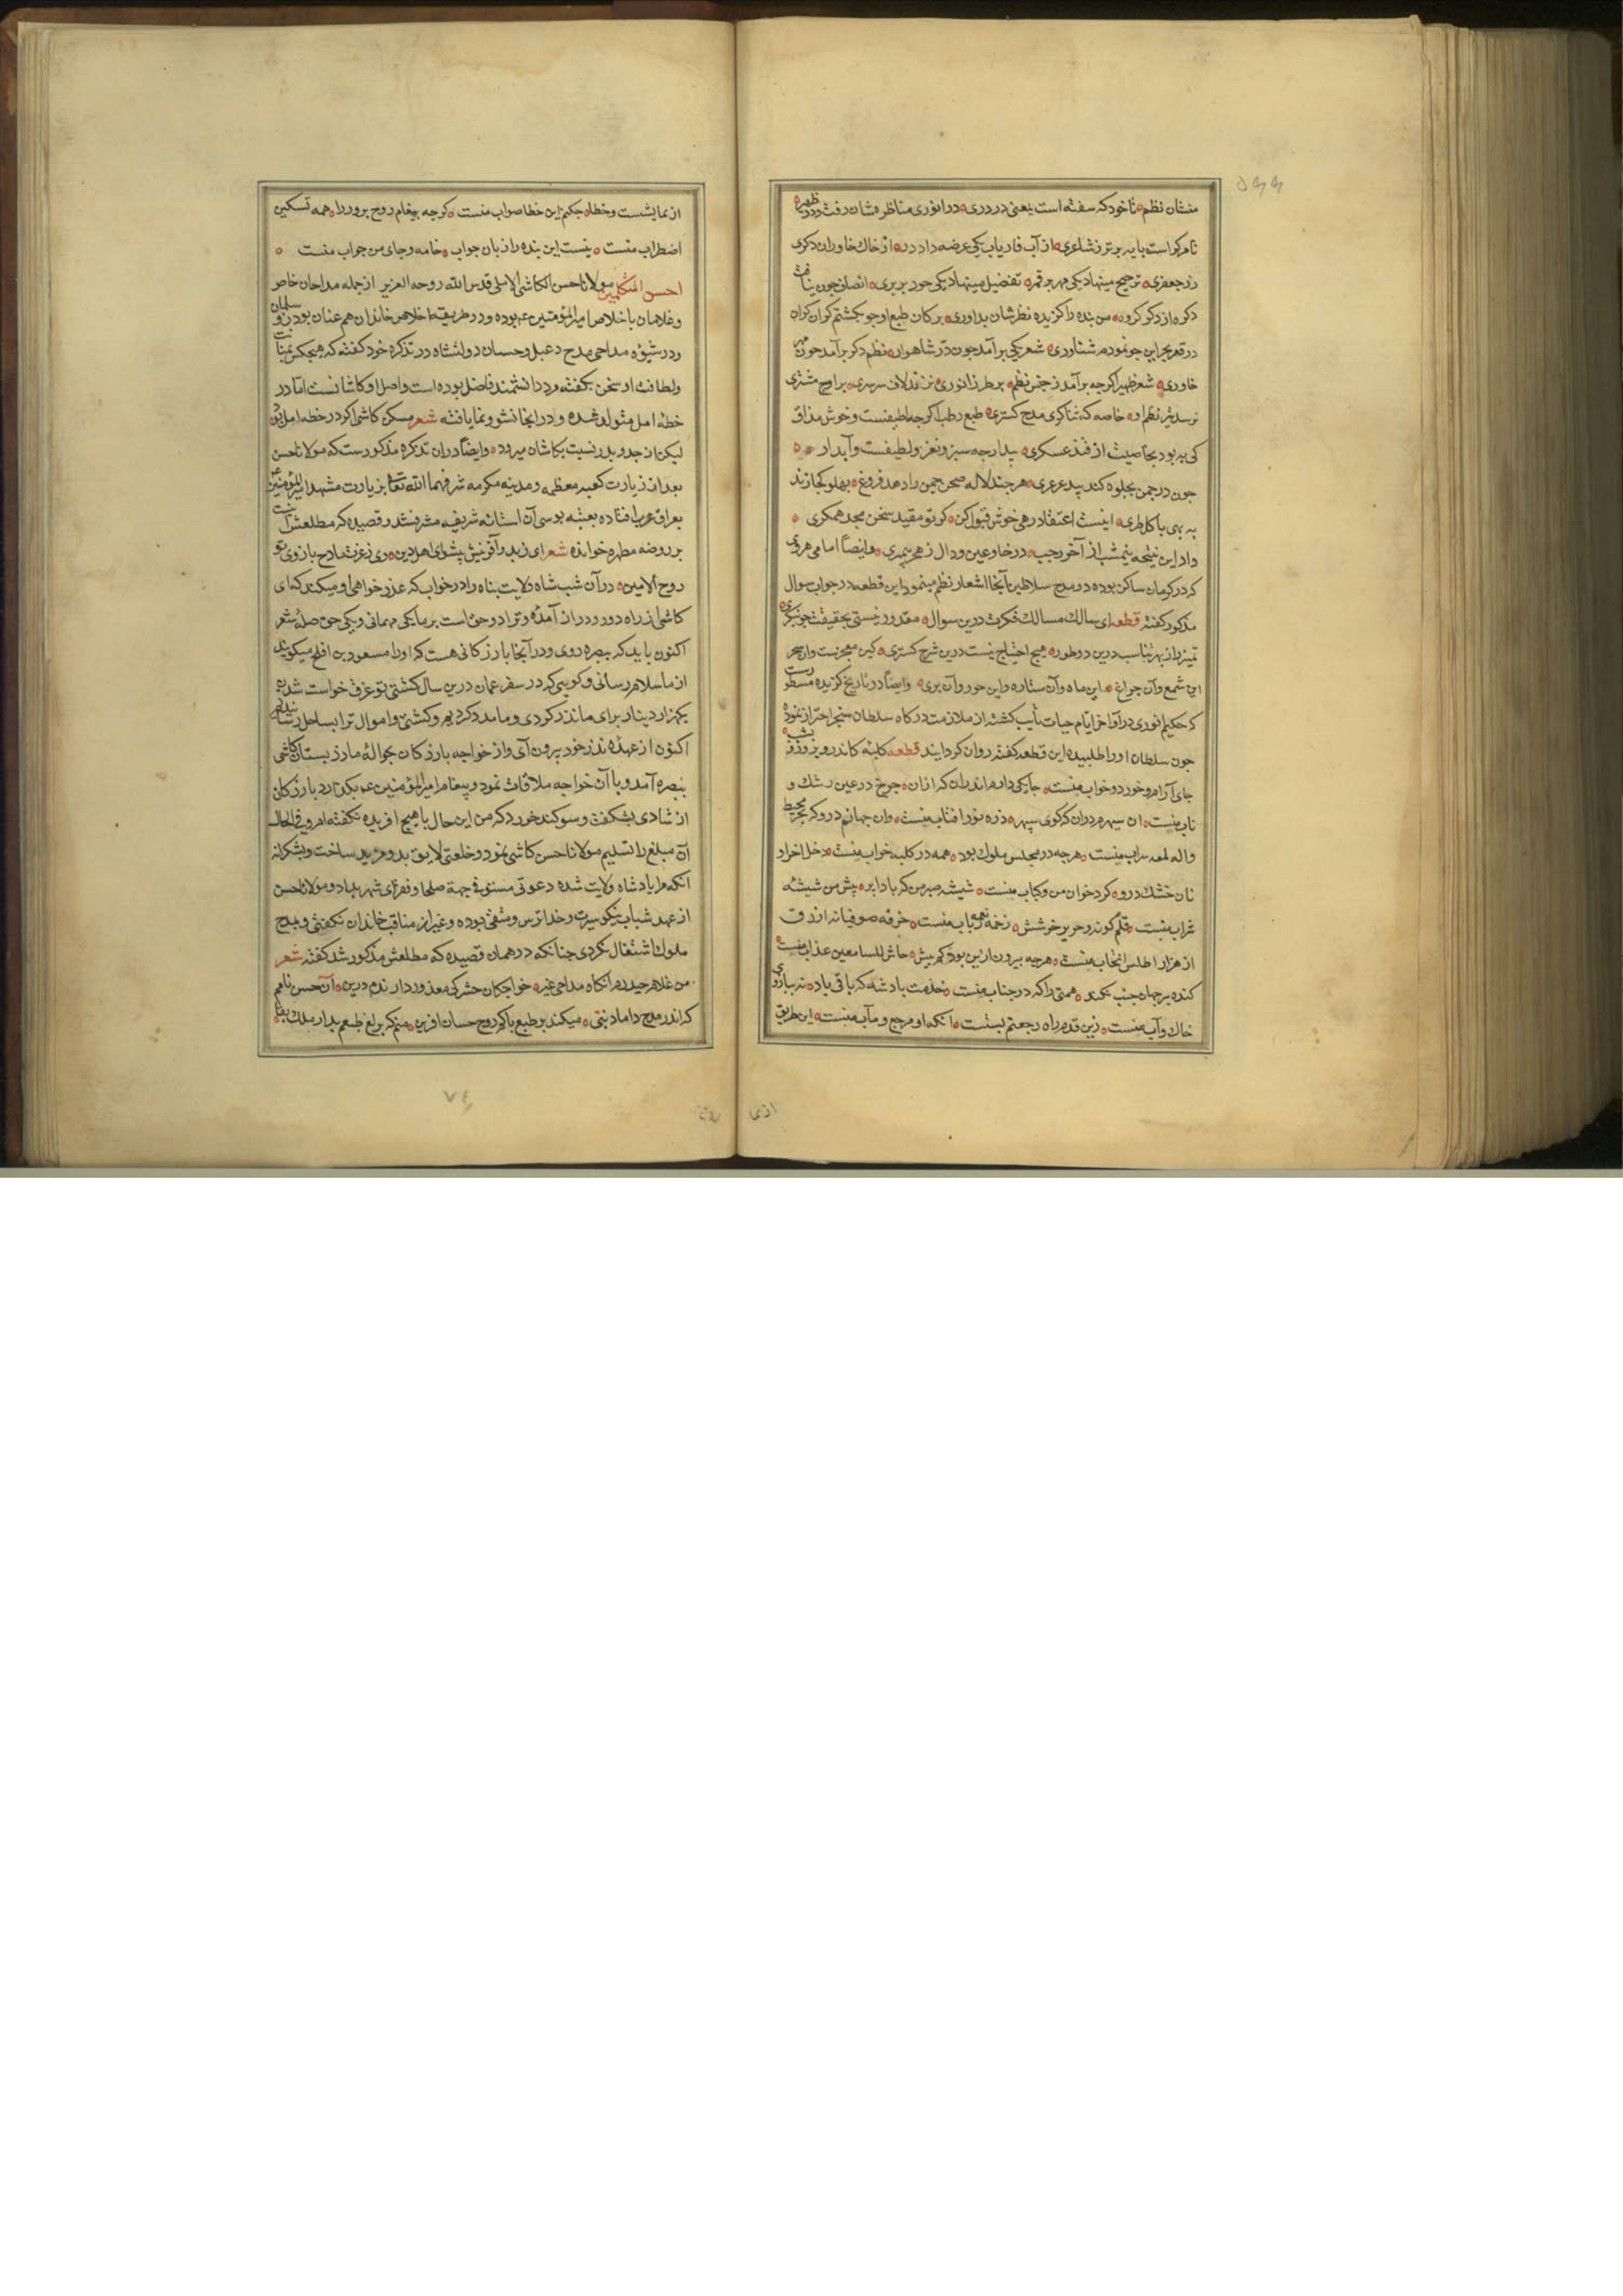 منشان نظم تا خود که سفته است یعنی در دری در انوری مناظره شان رفت و در ظهیر
نام کراست پایه برتر ز شاعری از آب فاریاب یکی عرضه داد در از خاک خاوران دکری
زر جعفری ترجیح مینهاد یکی مهر بر قمر تفضیل مینهاد یکی حور بر پری انصاف چون نیافت
کروه از دکر کروه من بنده را کزیده نظرشان بداوری بر کان طبع او چو بکشتم کران کران
در قعر بحر این چو نمودم شناوری شعر یکی برآمد چون در شاهوار نظم دکر برآمد چون مهر
خاوری شعر ظهیر اکر چه برآمد ز جنس نظم بر طرز انوری نزند لاف سرسری بر اوج مشتری
نرسد تیر نظم او خاصه که ثناکری مدح کستری طبع رطب اکر چه لطیفست و خوش مذاق
کی به بود بخاصیت از قند عسکری بید ار چه سبز و نغز و لطیفست و آبدار
چون در چمن بجلوه کند بید عرعری هر چند لاله صحن چمن را دهد فروغ پهلو کجا زند
به بهی با کل طری اینست اعتقاد رهی خوش قبول کن کر تو مقید سخن مجد همکری
داد این نتیجه نیمشب از آخر رجب در خا و عین و دال ز هجر پیمبری و ایضاً امامی هروی
که در کرمان ساکن بوده و در مدح سلاطین آنجا اشعار نظم مینمود این قطعه در جواب سوال
مذکور کفته قطعه ای سالک مسالک فکرت درین سوال معذور نیستی بحقیقت چو بنکری
تمیز را ز بهر تناسب درین دو طور هیچ احتیاج نیست درین شرح کستری کین معجزست و آن سحر
این شمع و آن چراغ این ماه و آن ستاره و این حور و آن پری و ایضاً در تاریخ کزیده مسطورست
که حکیم انوری در آواخر ایام حیات تایب کشته از ملازمت درکاه سلطان سنجر احتراز نموده
چون سلطان او را طلبیده این قطعه کفته روان کردانید قطعه کلبه کاندرو بروز و بشب
جای آرام و خورد و خواب منست جایکی دارم اندران که از آن چرخ در عین رشک و
تاب منست آن سپهرم در آن که کوی سپهر ذره نور آفتاب منست وان جهانم درو که بحر محیط
واله لمعه سراب منست هر چه در مجلس ملوک بود همه در کلبه خراب منست دخل اخرار
نان خشک درو کرد خوان من و کباب منست شیشه صبر من که باد ابر پیش من شیشه
شراب منست قلم کوته و صریر خوشش زخمه نغمه رباب منست خرقه صوفیانه ازرق
از هزار اطلس انتخاب منست هر چه بیرون ازین بود کم و بیش حاش للسامعین عذاب منست
کنده پیر جهان جنب نکند همتی را که در جناب منست خدمت پادشه که باقی باد نه ببازوی
خاک و آب منست زین قدم راه رجعتم بستست آنکه او مرجع و مآب منست این طریق
از نمایشست و خطا چکنم این خطا صواب منست کر چه پیغام روح پرور را همه تسکین
اضطراب منست نیست این بنده را زبان جواب خامه و جای من جواب منست
احسن المتکلمین مولانا حسن الکاشی الآملی قدس الله روحه العزیز از جمله مداحان خاص
و غلامان با اخلاص امیرالمؤمنین ع بوده و در طریقه اخلاص خاندان هم عنان بوذر و سلمان
و در شیوه مداحی مدح دعبل و حسان دولتشاه در تذکره خود کفته که هیچکس بمتانت
و لطافت او سخن نکفته مرد دانشمند فاضل بوده است و اصل او کاشانست اما در
خطه آمل متولد شده و در آنجا نشو و نما یافته شعر مسکن کاشی اکر در خطه آمل بود
لیکن از جد و پدر نسبت بکاشان میرود و ایضاً در آن تذکره مذکورست که مولانا حسن
بعد از زیارت کعبه معظمه و مدینه مکرمه شرفهما الله تعالی بزیارت مشهد امیرالمؤمنین ع
بعراق عرب افتاده بعتبه بوسی آن استانه شریفه مشرف شد و قصیده که مطلعش اینست
بر روضه مطهره خوانده شعر ای ز بدو آفرینش پیشوای اهل دین وی ز عزت مادح بازوی تو
روح الامین در آن شب شاه ولایت پناه را در خواب که عذر خواهی او میکند که ای
کاشی از راه دور و دراز آمدهٔ و ترا دو حق است بر ما یکی مهمانی و یکی حق صلهٔ شعر
اکنون باید که ببصره روی و در آنجا بازرکانی هست که او را مسعود بن افلح میکویند
از ما سلام رسانی و کویی که در سفر عمان درین سال کشتی تو غرق خواست شدن
یکهزار دینار برای ما نذر کردی و ما مدد کردیم و کشتی و اموال ترا بساحل رسانیدیم
اکنون از عهدهٔ نذر خود بیرون آی و از خواجه بازرکان بحوالهٔ ما زر بستان کاشی
ببصره آمد و با آن خواجه ملاقات نمود و پیغام امیرالمؤمنین ع بکذارد بازرکان
از شادی بشکفت و سوکند خورد که من این حال با هیچ آفریده نکفته ام و فی الحال
آن مبلغ را تسلیم مولانا حسن کاشی نمود و خلعتی لایق بدو مزید ساخت و بشکرانه
آنکه مرا یاد شاه ولایت شده دعوتی مستوفی جهة صلحا و فقرای شهر بداد و مولانا حسن
از عهد شباب نیکو سیرت و خدا ترس و متقی بوده و غیر از مناقب خاندان نکفتی و بمدح
ملوک اشتغال نکردی چنانکه در همان قصیده که مطلعش مذکور شد کفته شعر
من غلام حیدرم آنکاه مداحی غیر خواجکان حشر کی معذور دارندم درین آن حسن نامم
که اندر مدح داماد نبی میکند بر طبع پاکم روح حسان آفرین منم که بر لغ طبعم بدار ملک بقا